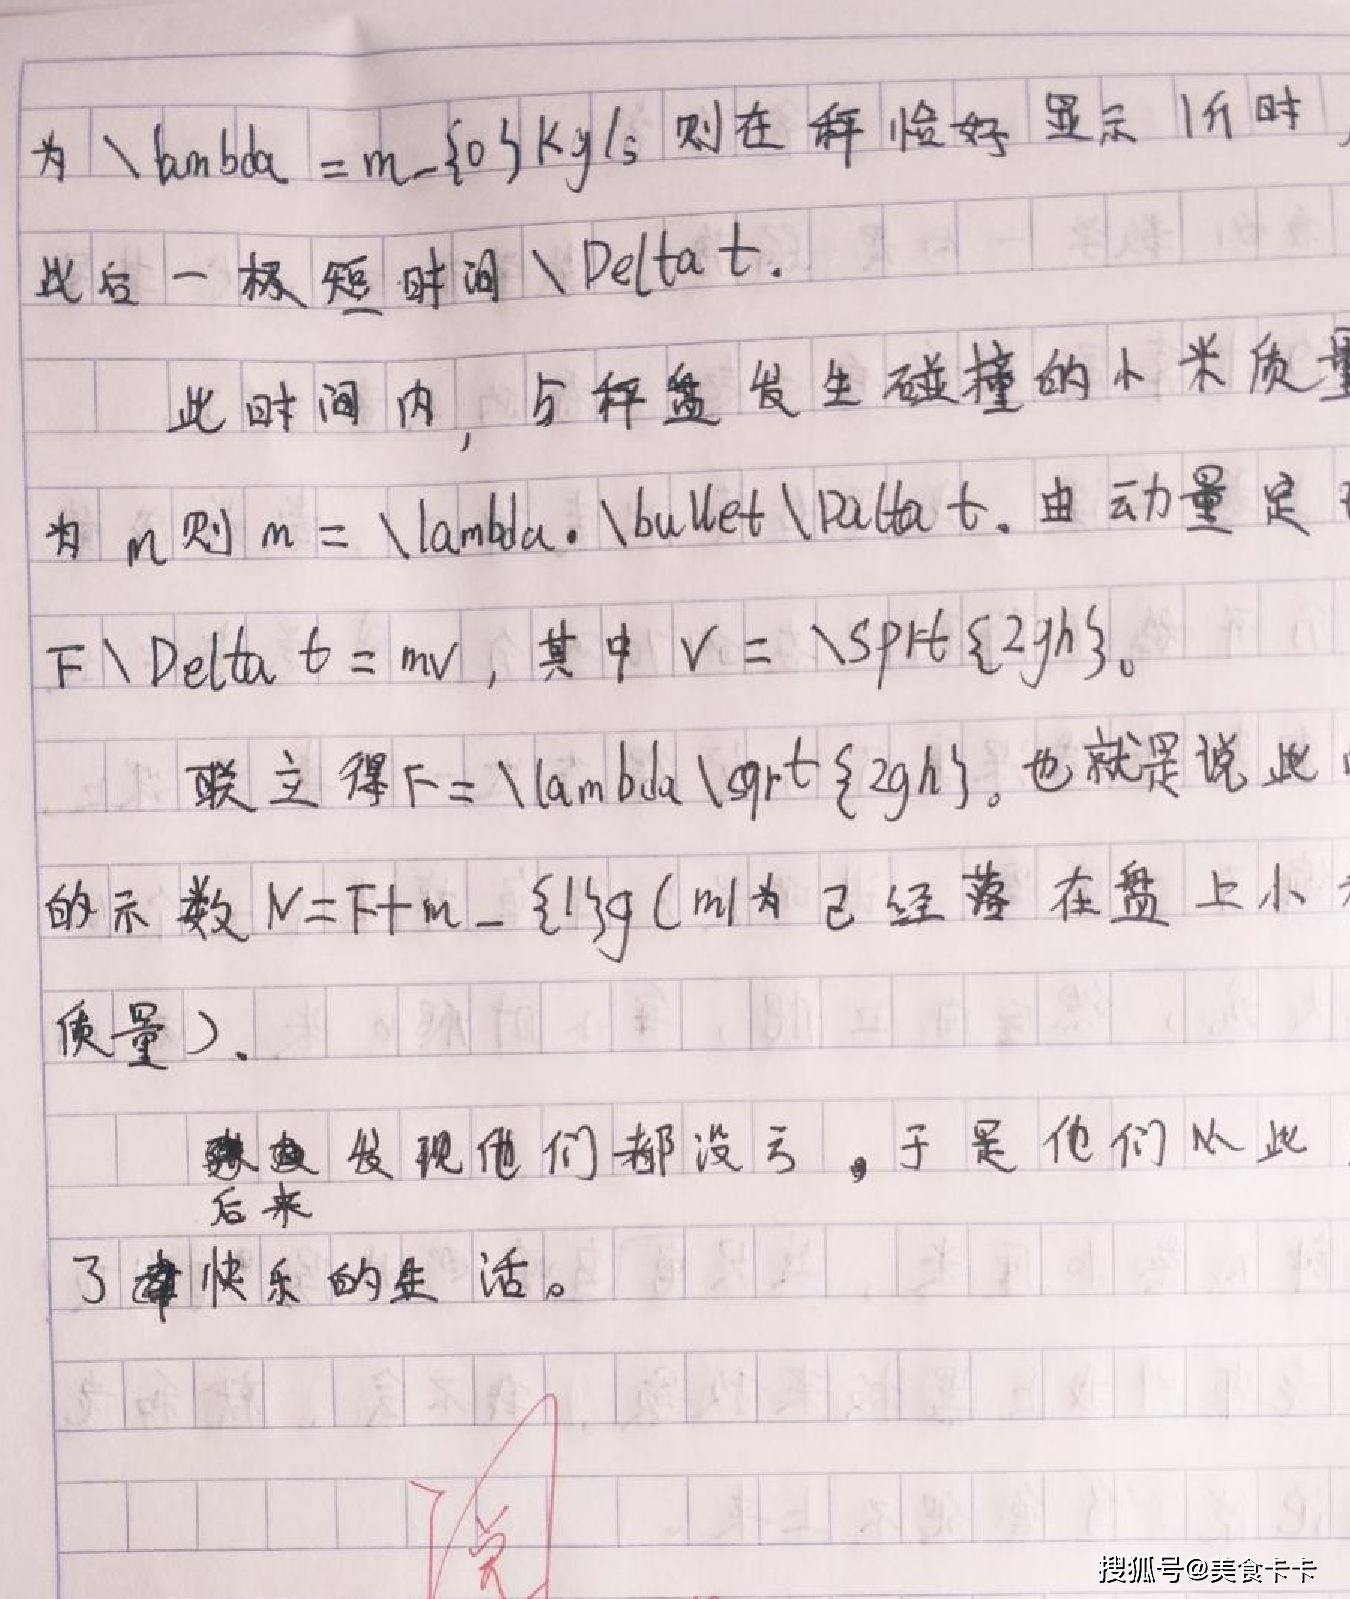 为 \lambda = m_{0}Kg/s 则在秤恰好显示1斤时,
此后一极短时间 \Delta t.
此时间内,与秤盘发生碰撞的小米质量
为 m 则 m = \lambda. \bullet \Dalta t. 由动量定
F \Delta t = mv, 其中 v = \sprt{2gh}。
联立得F= \lambda \sqrt{2gh}。也就是说此
的示数 N=F+m_{1}g(m1为已经落在盘上小
质量).
发现他们都没亏。于是他们从此
后来
了快乐的生活。
阅
搜狐号@美食卡卡